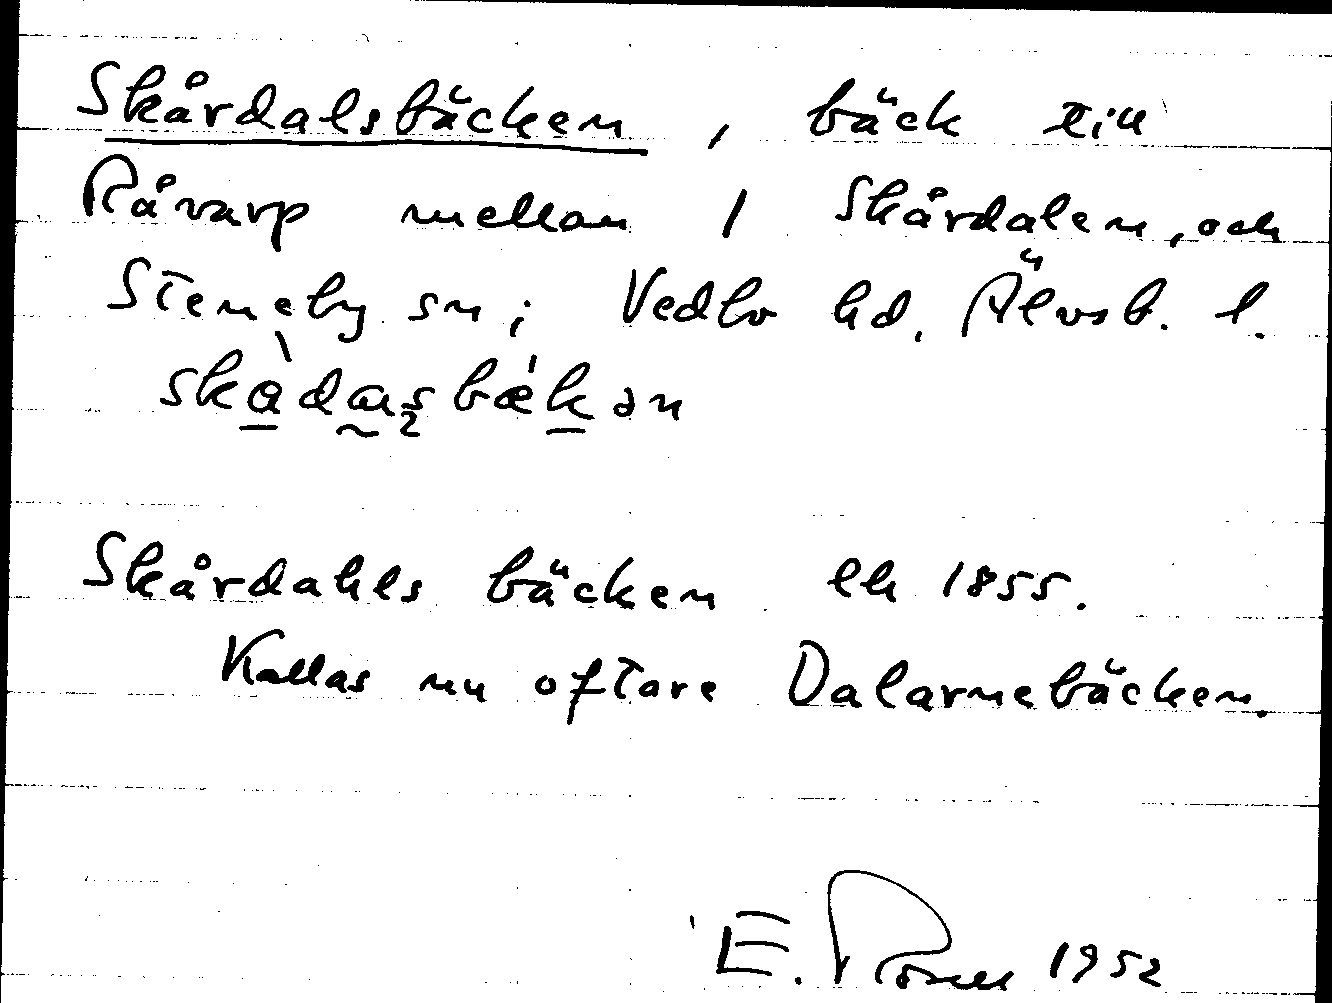 Skårdalsbäcken, bäck till
Råvarp mellan 1 Skårdalen, och
Steneby sn; Vedbo hd. Älvsb. l.
skådasbækən
Skårdahls bäcken lk 1855.
Kallas nu oftare Dalarnebäcken.
E. Rosell 1952